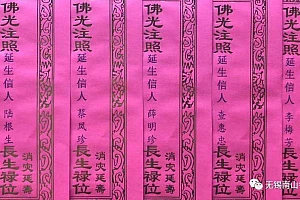 佛光注照
延生信人 陆根生 長生禄位
消灾延壽
佛光注照
延生信人 蔡凤珍 長生禄位
消灾延壽
佛光注照
延生信人 薛明珍 長生禄位
消灾延壽
佛光注照
延生信人 查惠忠 長生禄位
消灾延壽
佛光注照
延生信人 李梅芳 長生禄位
无锡南山